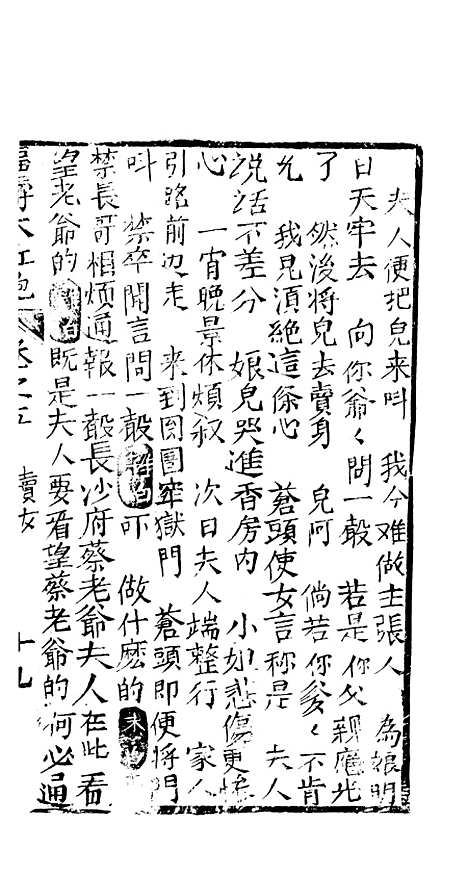 夫人便把兒來呌　我今难做主張人　為娘明
日天牢去　向你爺〻問一聲　若是你父親應允
了　然後將兒去賣身　兒阿　倘若你爹〻不肯
允　我兒須絶這條心　蒼頭使女言称是　夫人
説話不差分　娘兒哭進香房内　小姐悲傷更
心　一宵晚景休煩叙　次日夫人端整行　家人
引路前边走　來到囹圄牢獄門　蒼頭即便將門
呌　禁卒開言問一聲　吓　做什麽的　末
禁長哥相煩通報一聲長沙府蔡老爺夫人在此看
望老爺的　既是夫人要看望蔡老爺的何必通
福壽大紅袍　卷之五　賣女　十九